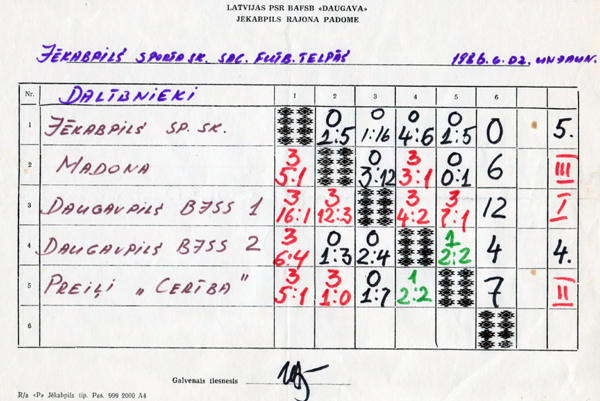 LATVIJAS PSR BAFSB «DAUGAVA»
JĒKABPILS RAJONA PADOME
JĒKABPILS SPORTA SK. SAC. FUTB. TELPĀS 1986.G.02.
Nr. DALĪBNIEKI 1 2 3 4 5 6
1 JĒKABPILS SP. SK. 0 0 0 0 0 5.
2:5 1:16 4:6 1:5
2 MADONA 3 0 3 0 6 III
5:1 3:12 3:1 0:1
3 DAUGAVPILS BJSS 1 3 3 3 3 12 I
16:1 12:3 4:2 7:1
4 DAUGAVPILS BJSS 2 3 0 0 1 4 4.
6:4 1:3 2:4 2:2
5 PREIĻI „CERĪBA" 3 3 0 1 7 II
5:1 1:0 1:7 2:2
6
Galvenais tiesnesis
R/a «P» Jēkabpils tip. Pas. 999 2000 A4